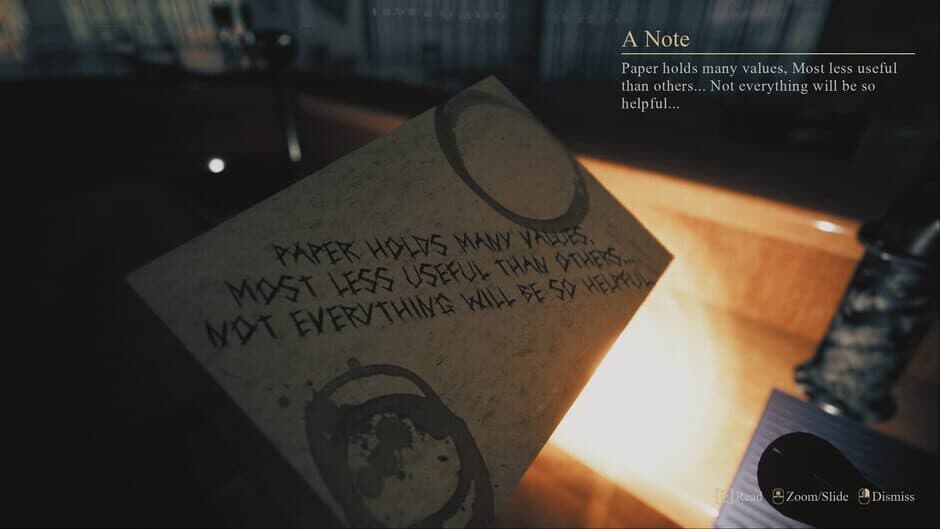 A Note
Paper holds many values, Most less useful
than others... Not everything will be so
helpful...
PAPER HOLDS MANY VALUES,
MOST LESS USEFUL THAN OTHERS...
NOT EVERYTHING WILL BE SO HELPFUL...
Read Zoom/Slide Dismiss